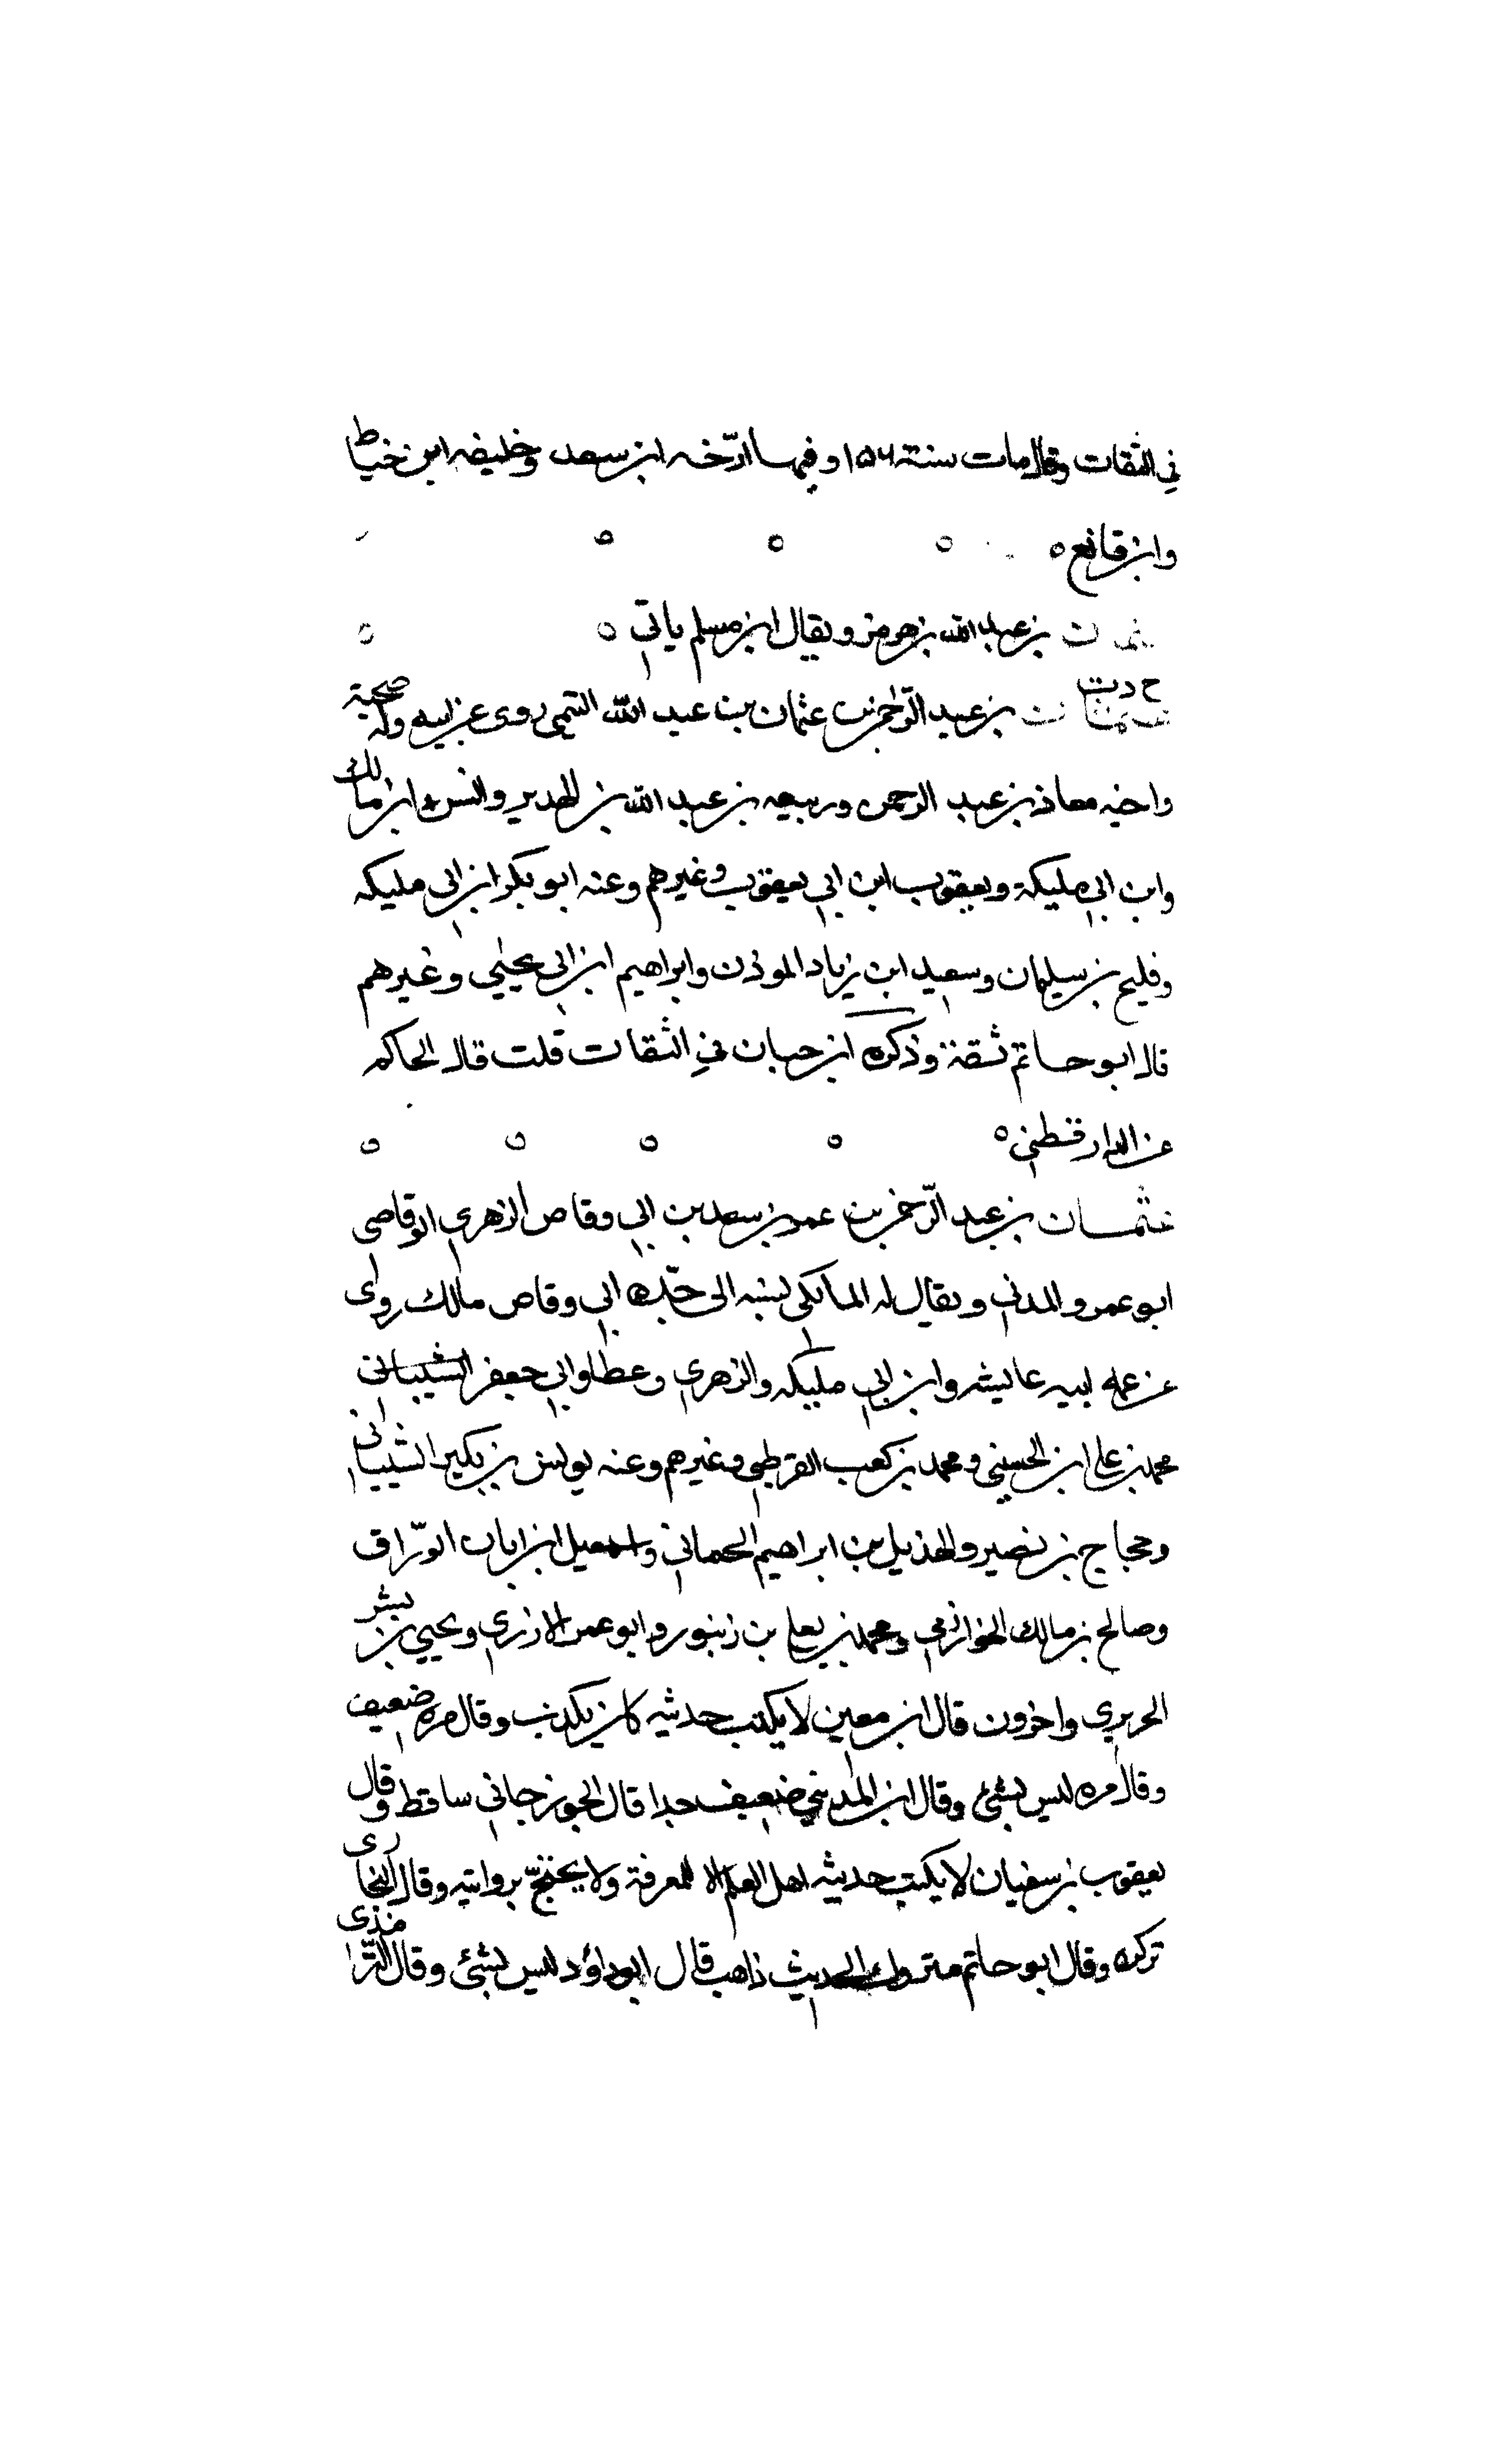 في الثقات وقال مات سنة ١٥٤ وفيها ارّخه ابن سعد وخليفه ابن خياط
وابن قانع ٥
عثمان بن عبد الله بن هرمز ويقال ابن مسلم ياتي
خ د ت
عثمان بن عبد الرّحمن بن عثمان بن عبد الله التيمي روى عن ابيه وله صحبة
واخيه معاذ بن عبد الرحمن وربيعه بن عبد الله بن الهدير وانس ابن مالك
وابن ابي مليكة ويعقوب ابن ابي يعقوب وغيرهم وعنه ابو بكر ابن ابي مليكه
وفليح بن سليمان وسعيد ابن زياد الموذن وابراهيم ابن ابي يحيي وغيرهم
قال ابو حاتم ثقة وذكره ابن حبان في الثقات قلت قال الحاكم
عن الدارقطني ٥
عثمان بن عبد الرّحمن بن عمر بن سعد بن ابي وقاص الزهري الوقاصي
ابو عمرو المدني ويقال له المالكي نسبه الى جدّه ابي وقاص مالك روى
عن عمه ابيه عايشه وابن ابي مليكه والزهري وعطا وابي جعفر الشيباني
محمد بن علي ابن الحسين ومحمد بن كعب القرظي وغيرهم وعنه يونس بن بكير الشيباني
وحجاج بن نصير والهذيل بن ابراهيم الحماني واسمعيل ابن ابان الورّاق
وصالح بن مالك الخوارزمي ومحمد بن يعلى بن زنبور وابو عمر الازري ويحيي بن بشر
الحريري واخرون قال ابن معين لا يكتب حديثه كان يكذب وقال مره ضعيف
وقال مره ليس بشئ وقال ابن المديني ضعيف جدا قال الجوزجاني ساقط وقال
يعقوب بن سفيان لا يكتب حديثه اهل العلم الا للمعرفة ولا يحتجّ بروايته وقال البخارى
تركوه وقال ابو حاتم متروك الحديث ذاهب قال ابو داؤد ليس بشئ وقال التّرمذى